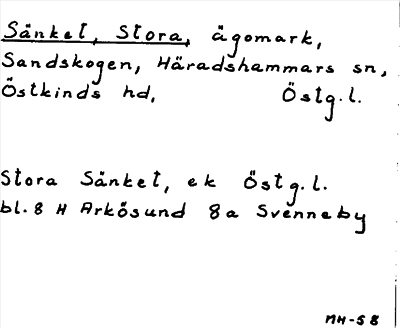 Sänket, Stora, ägomark,
Sandskogen, Häradshammars sn,
Östkinds hd, Östg.l.
Stora Sänket, ek Östg.l.
bl. 8 H Arkösund 8a Svenneby
MH-58